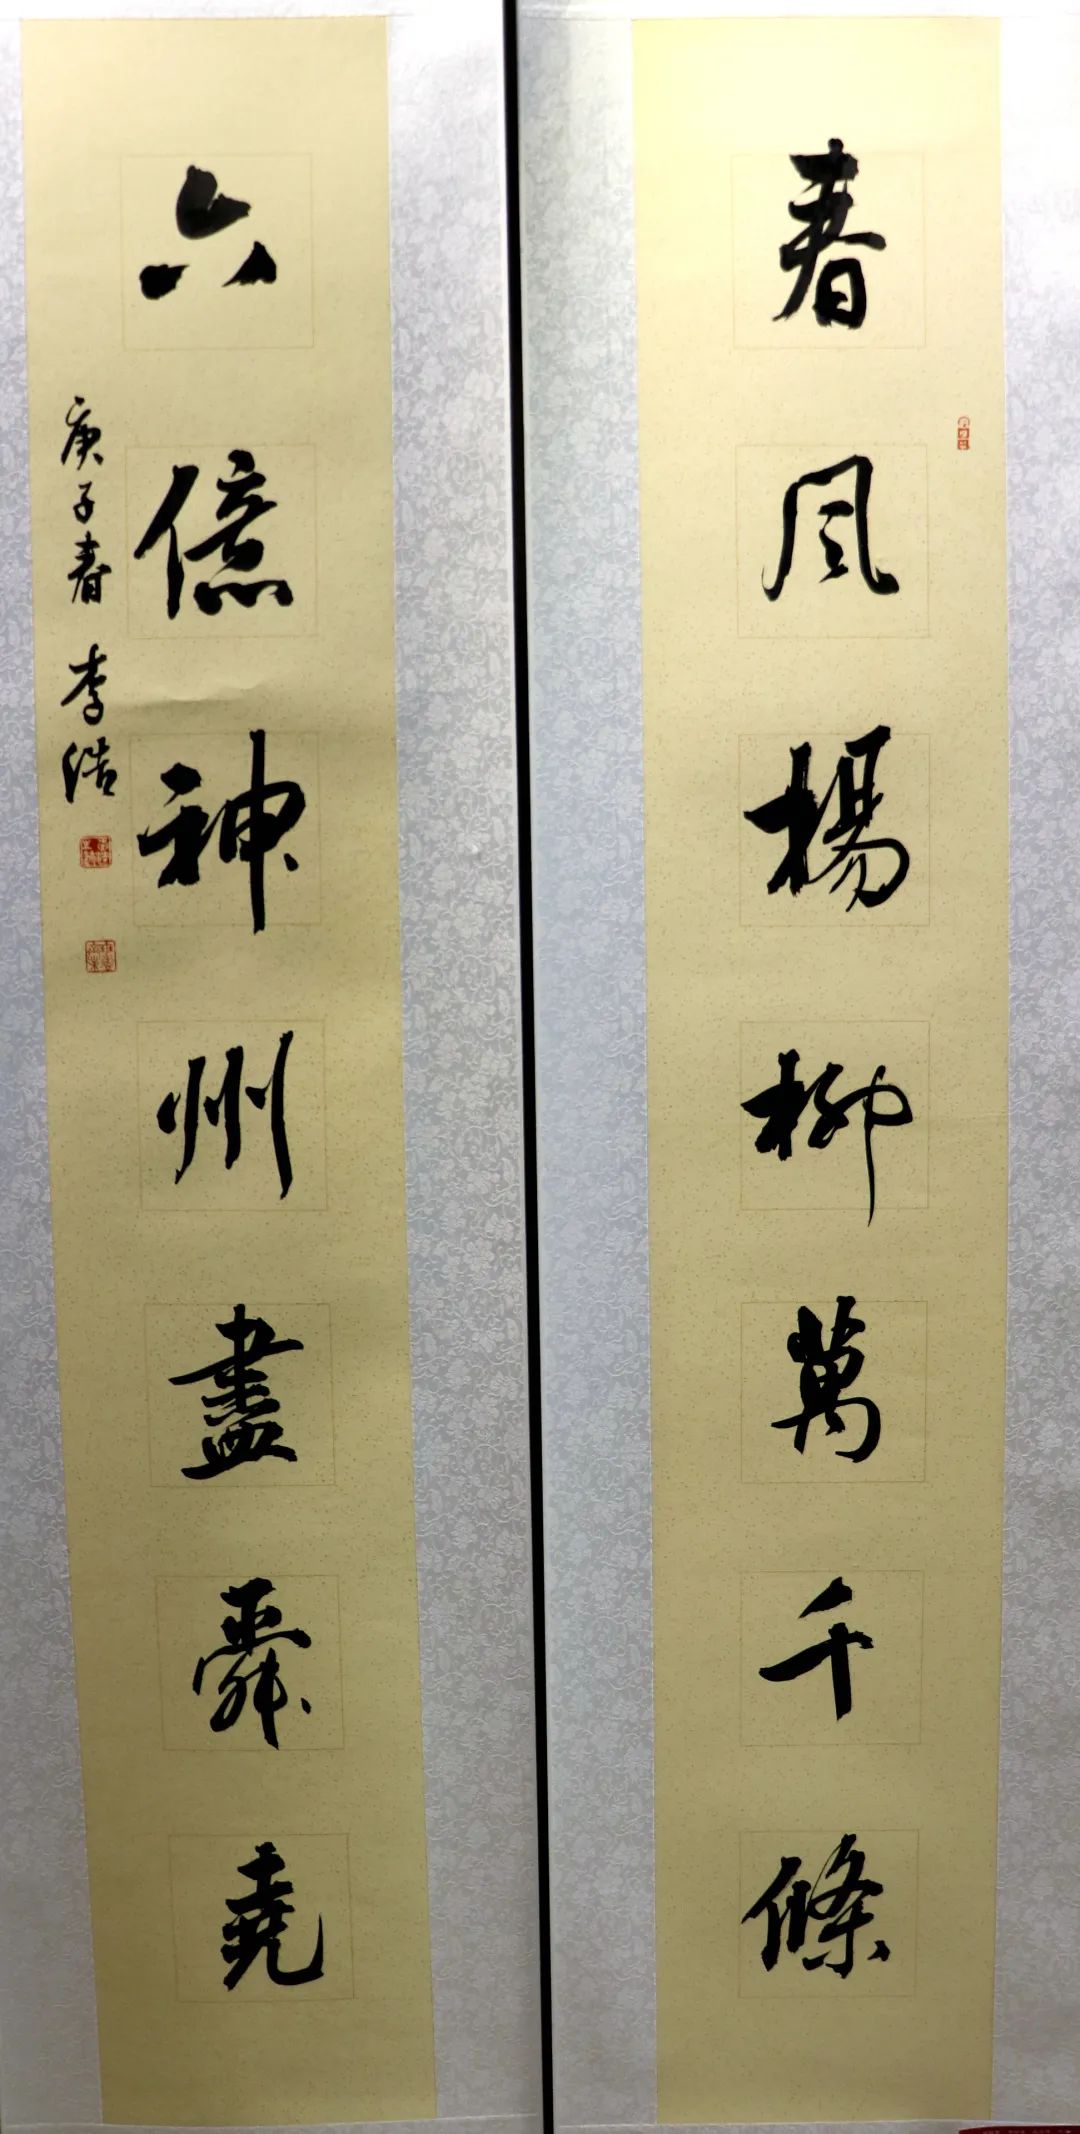 春風楊柳萬千條
六億神州盡舜堯
庚子春 李浩